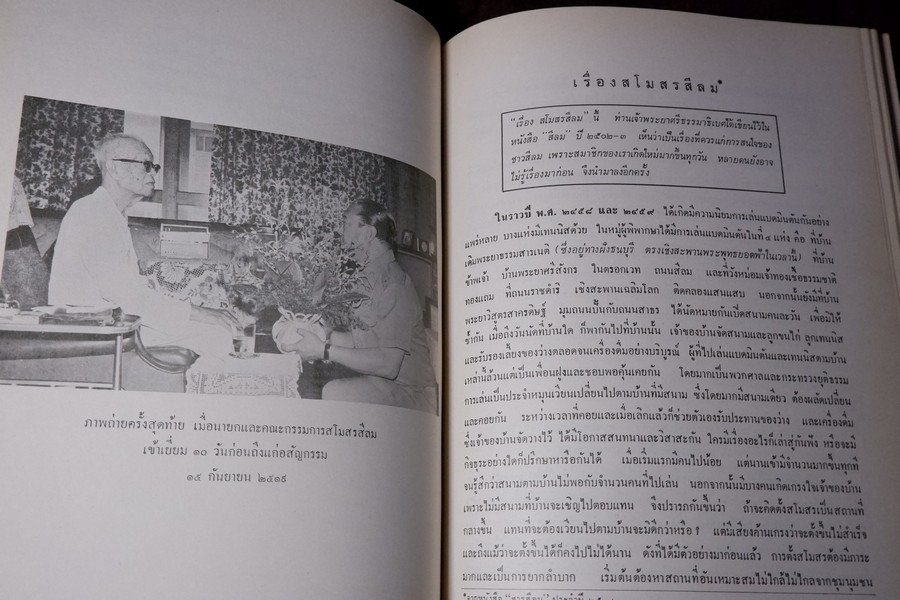 ภาพถ่ายครั้งสุดท้าย เมื่อนายกและคณะกรรมการสโมสรสีลม
เข้าเยี่ยม ๑๐ วันก่อนถึงแก่อสัญกรรม
๑๕ กันยายน ๒๕๑๙
เรื่องสโมสรสีลม*
"เรื่อง สโมสรสีลม" นี้ ท่านเจ้าพระยาศรีธรรมาธิเบศได้เขียนไว้ใน
หนังสือ "สีลม" ปี ๒๕๐๒-๓ เห็นว่าเป็นเรื่องที่ควรแก่การสนใจของ
ชาวสีลม เพราะสมาชิกของเราเกิดใหม่มากขึ้นทุกวัน หลายคนยังอาจ
ไม่รู้เรื่องมาก่อน จึงนำมาลงอีกครั้ง
ในราวปี พ.ศ. ๒๔๕๘ และ ๒๔๕๙ ได้เกิดมีความนิยมการเล่นแบดมินตันกันอย่าง
แพร่หลาย บางแห่งมีเทนนิสด้วย ในหมู่ผู้พิพากษาได้มีการเล่นแบดมินตันในที่ ๔ แห่ง คือ ที่บ้าน
เดิมพระยาธรรมสารเนติ (ซึ่งอยู่ทางฝั่งธนบุรี ตรงเชิงสะพานพระพุทธยอดฟ้าในเวลานี้) ที่บ้าน
ข้าพเจ้า บ้านพระยาศรีสังกร ในตรอกเวท ถนนสีลม และที่วังหม่อมเจ้าทองเชื้อธรรมชาติ
ทองแถม ที่ถนนราชดำริ เชิงสะพานเฉลิมโลก ติดคลองแสนแสบ นอกจากนั้นยังมีที่บ้าน
พระยาวิสูตรสาครดิษฐ์ มุมถนนปั้นกับถนนสาธร ได้นัดหมายกันเปิดสนามคนละวัน เพื่อมิให้
ซ้ำกัน เมื่อถึงวันนัดที่บ้านใด ก็พากันไปที่บ้านนั้น เจ้าของบ้านจัดสนามและลูกขนไก่ ลูกเทนนิส
และรับรองเลี้ยงของว่างตลอดจนเครื่องดื่มอย่างบริบูรณ์ ผู้ที่ไปเล่นแบดมินตันและเทนนิสตามบ้าน
เหล่านี้ล้วนแต่เป็นเพื่อนฝูงและชอบพอคุ้นเคยกัน โดยมากเป็นพวกศาลและกระทรวงยุติธรรม
การเล่นเป็นประจำหมุนเวียนเปลี่ยนไปตามบ้านที่มีสนาม ซึ่งโดยมากมีสนามเดียว ต้องผลัดเปลี่ยน
และคอยกัน ระหว่างเวลาที่คอยและเมื่อเลิกแล้วก็ช่วยตัวเองรับประทานของว่าง และเครื่องดื่ม
ซึ่งเจ้าของบ้านจัดวางไว้ ได้มีโอกาสสนทนาและวิสาสะกัน ใครมีเรื่องอะไรก็เล่าสู่กันฟัง หรือจะมี
กิจธุระอย่างใดก็ปรึกษาหารือกันได้ เมื่อเริ่มแรกมีคนไปน้อย แต่นานเข้ามีจำนวนมากขึ้นทุกที
จนรู้สึกว่าสนามตามบ้านไม่พอกับจำนวนคนที่ไปเล่น นอกจากนั้นมีบางคนเกิดเกรงใจเจ้าของบ้าน
เพราะไม่มีสนามที่บ้านจะเชิญไปตอบแทน จึงปรารภกันขึ้นว่า ถ้าจะคิดตั้งสโมสรเป็นสถานที่
กลางขึ้น แทนที่จะต้องเวียนไปตามบ้านจะมิดีกว่าหรือ ? แต่มีเสียงค้านเกรงว่าจะตั้งขึ้นไม่สำเร็จ
และถึงแม้ว่าจะตั้งขึ้นได้ก็คงไปไม่ได้นาน ดังที่ได้มีตัวอย่างมาก่อนแล้ว การตั้งสโมสรต้องมีภาระ
มากและเป็นการยากลำบาก เริ่มต้นต้องหาสถานที่อันเหมาะสมไม่ใกล้ไม่ไกลจากชุมนุมชน